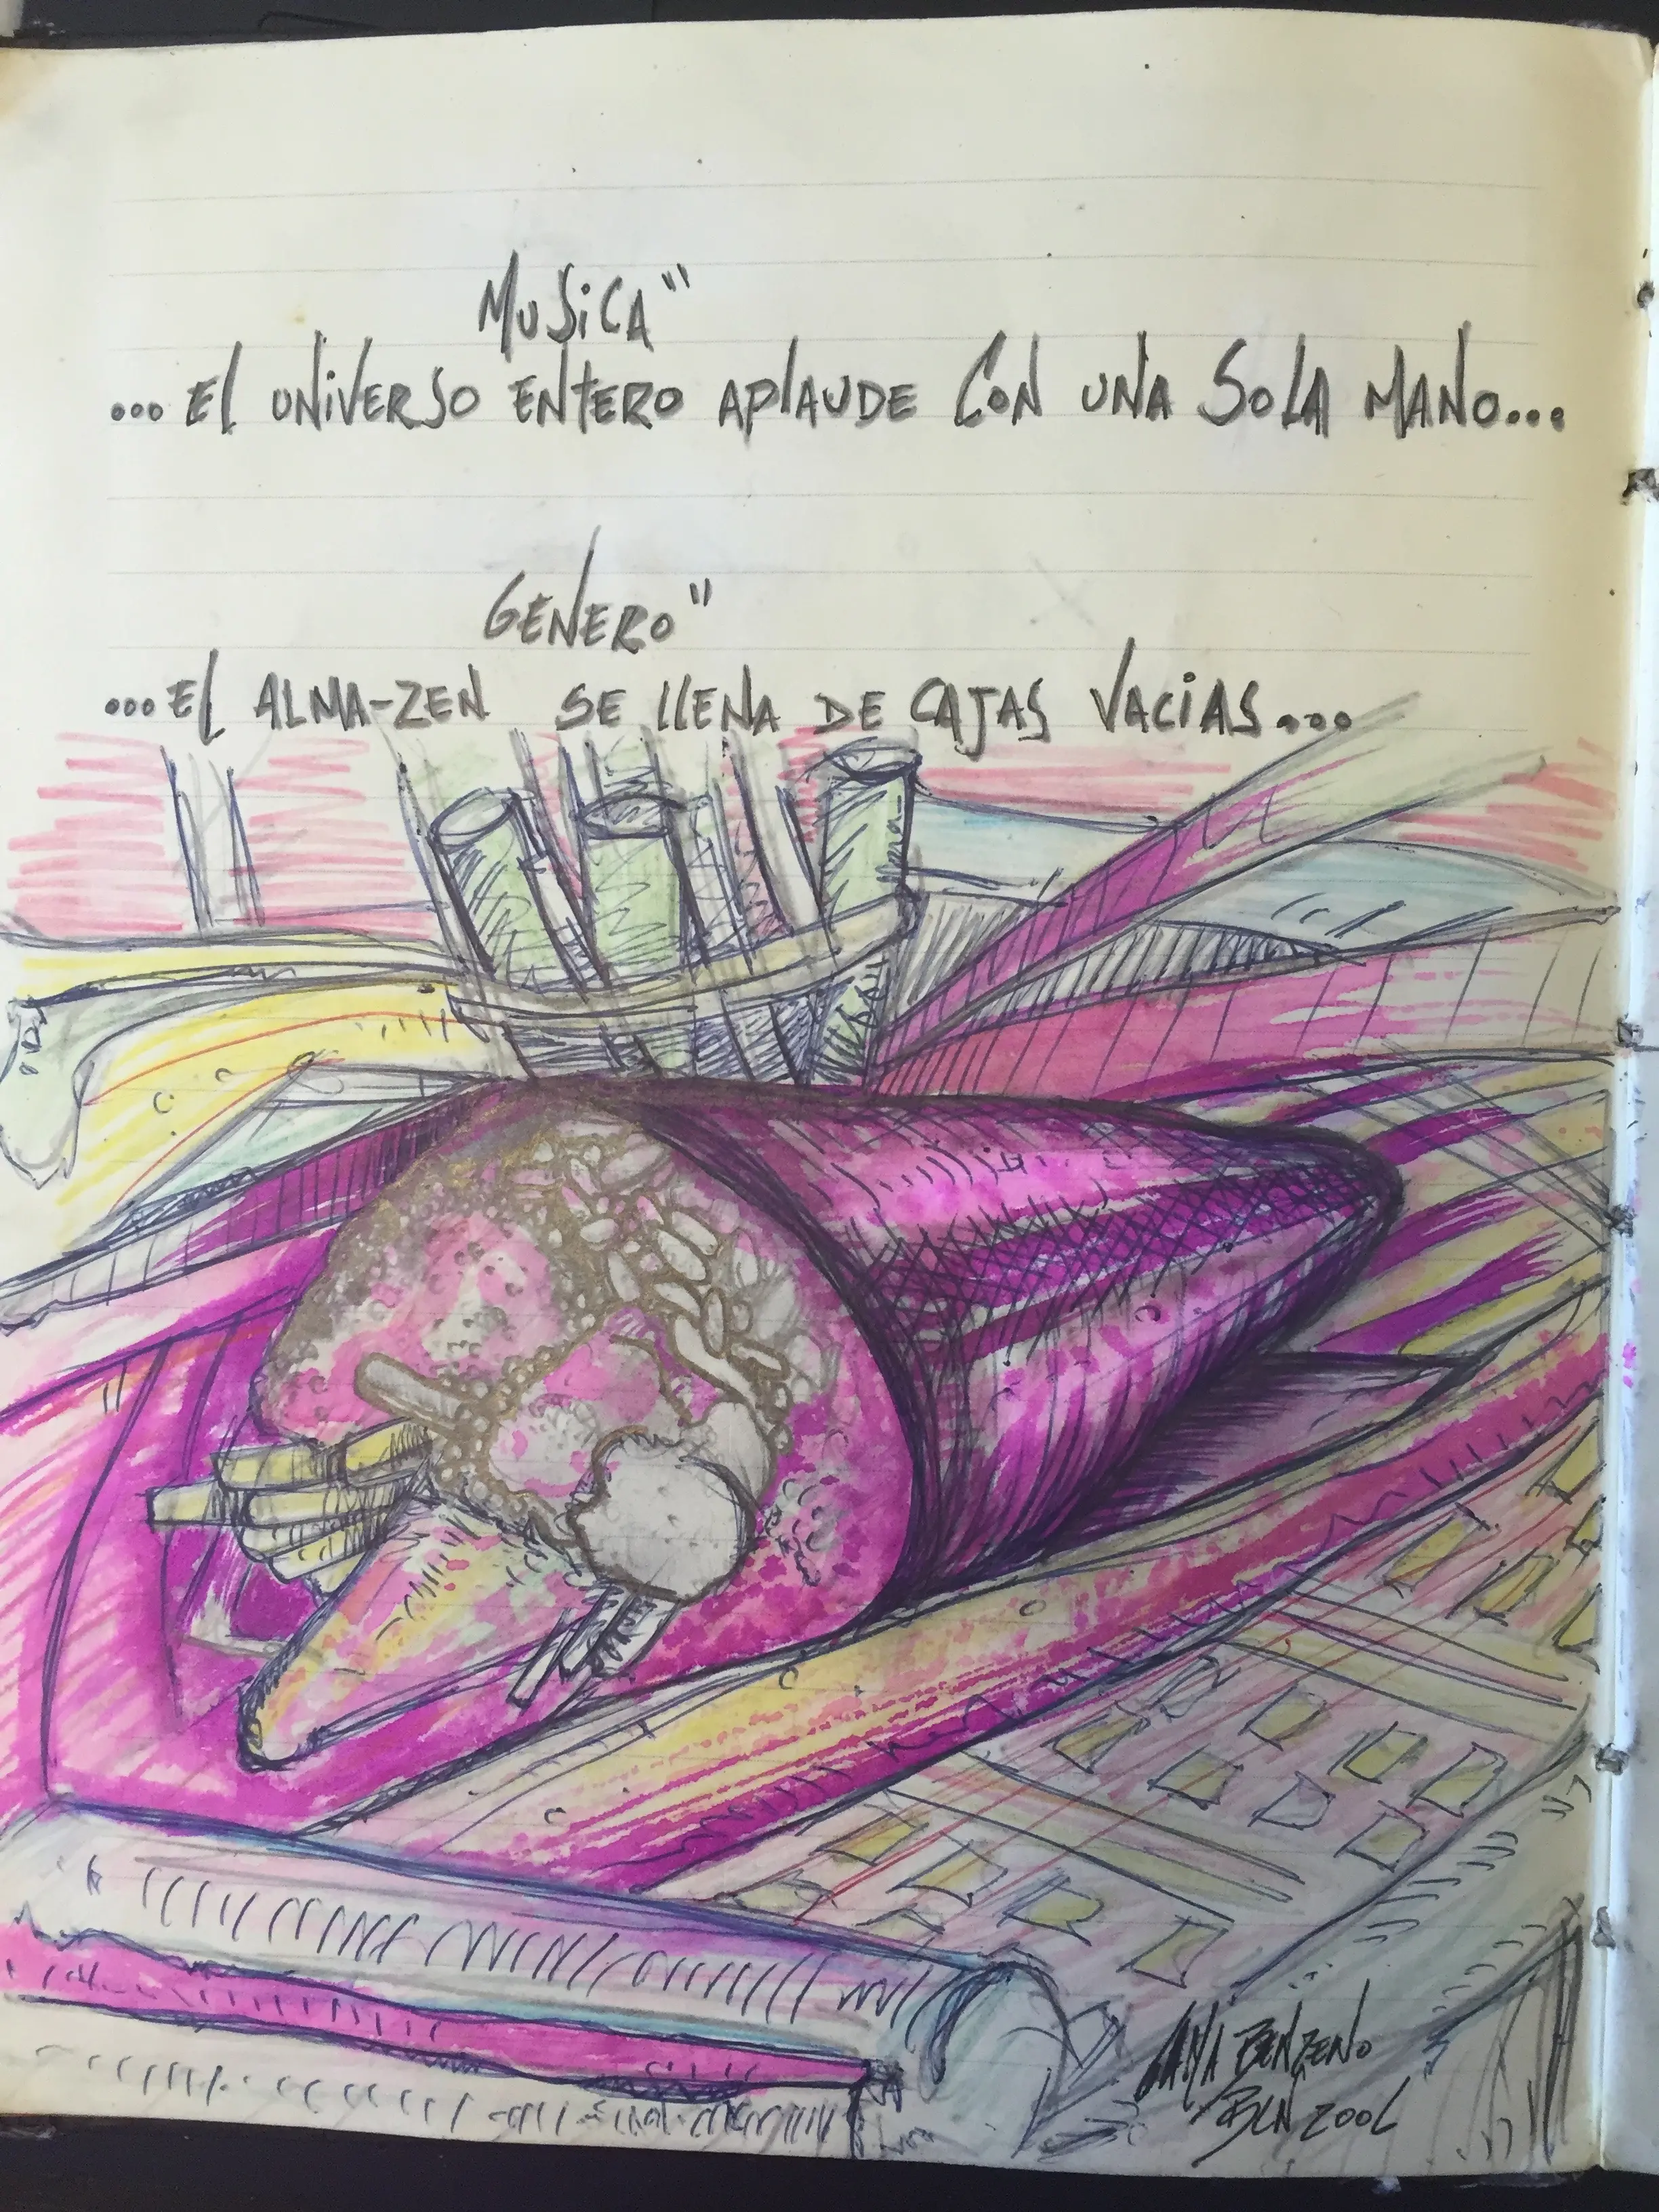 MUSICA"
...El UNIVERSO ENTERO APlAUDE CON UNA SOLA MANO...
GENERO"
...EL ALMA-ZEN SE llENA DE CAJAS VACIAS...
BENZENO
BCN